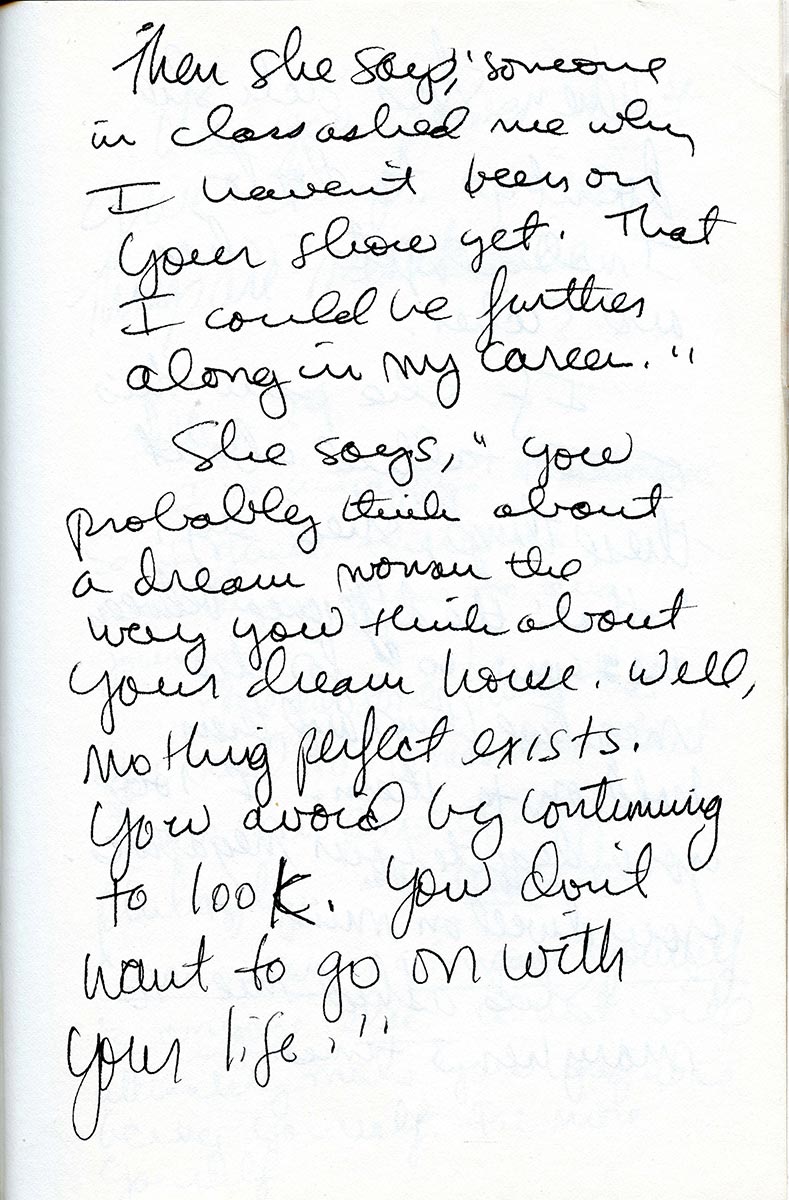 Then she says, "someone
in class asked me why
I haven't been on
your show yet. That
I could be further
along in my career."
She says, "you
probably think about
a dream woman the
way you think about
your dream house. Well,
nothing perfect exists.
You avoid by continuing
to look. You don't
want to go on with
your life."